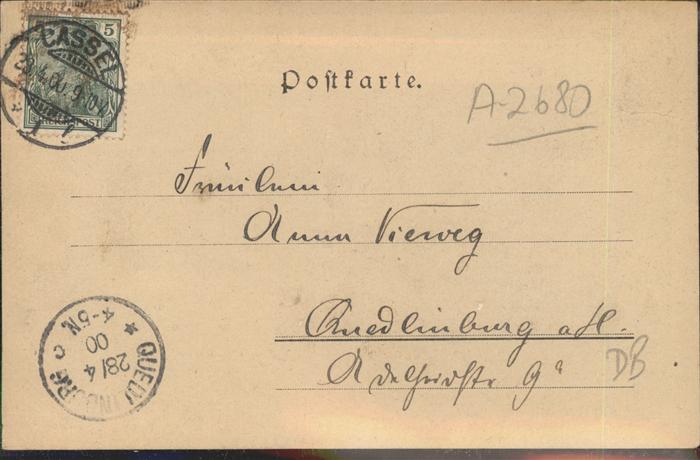 5
CASSEL
REICHSPOST
Postkarte.
A-2680
Fräulein
Anna Vierweg
Quedlinburg a/H.
Adelheidstr 9a
DB
QUEDLINBURG
28/4
00
4-5N.